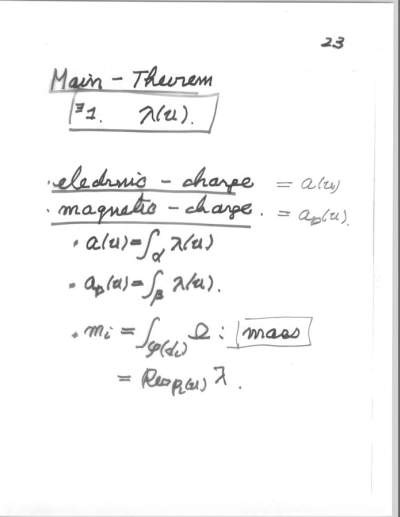 23
Main - Theorem
∃1. λ(u).
· electric - charge = a(u)
· magnetic - charge. = a_D(u).
· a(u) = ∫_α λ(u)
· a_D(u) = ∫_β λ(u).
· m_i = ∫_φ(d_i) Ω : mass
= Res_{P_i(u)} λ.